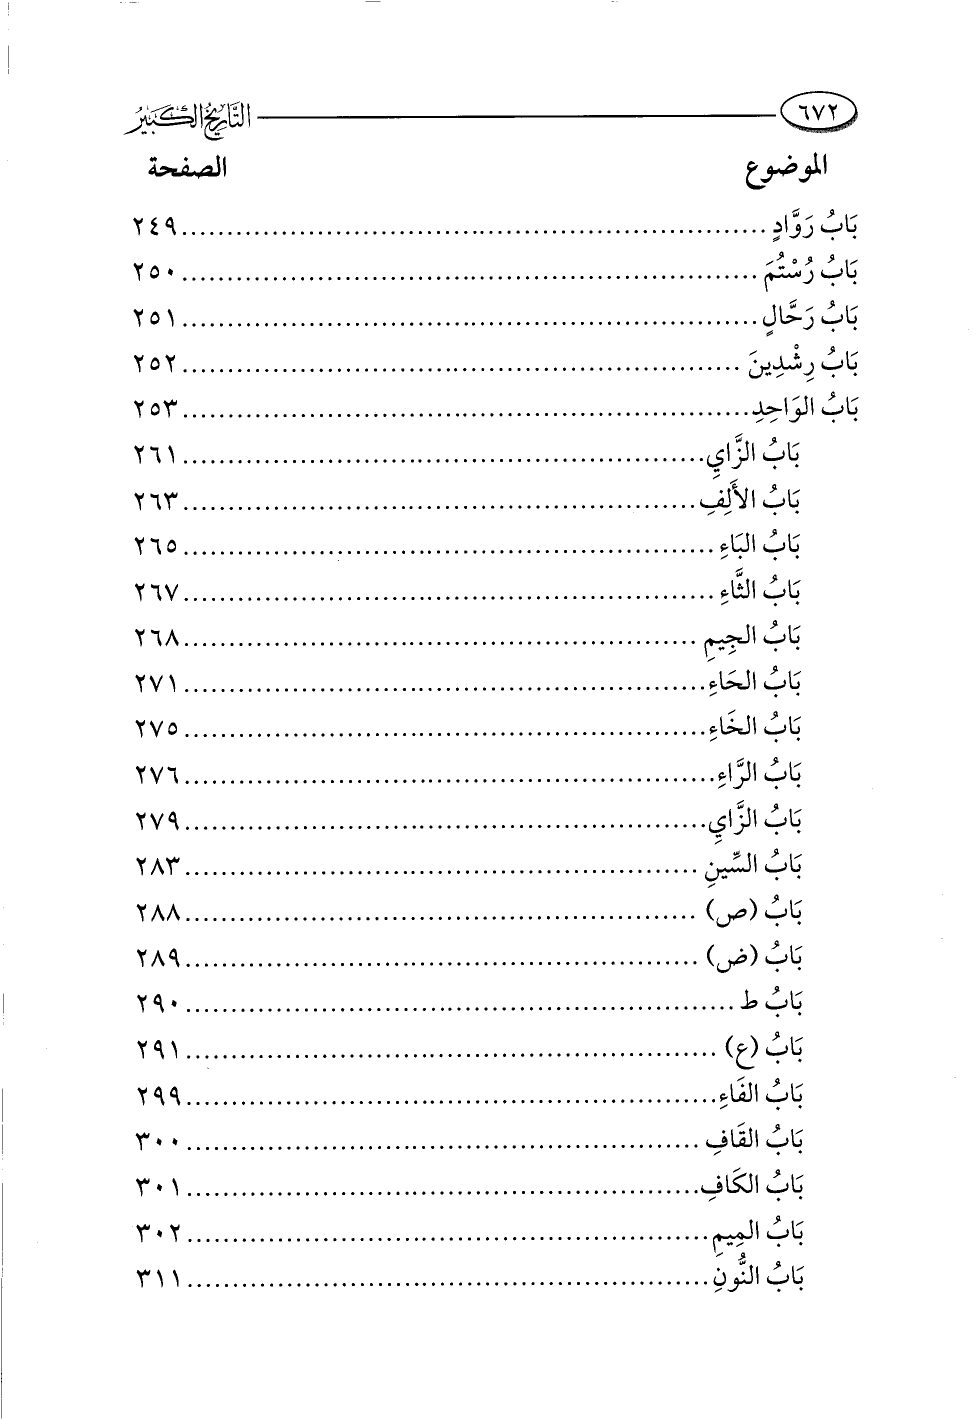 ٦٧٢ التَّارِيخُ الكَبِيرُ
الموضوع الصفحة
بَابُ رَوَّادٍ ........ ٢٤٩
بَابُ رُسْتُمَ ........ ٢٥٠
بَابُ رَحَّالٍ ........ ٢٥١
بَابُ رِشْدِينَ ........ ٢٥٢
بَابُ الوَاحِدِ ........ ٢٥٣
بَابُ الزَّايِ ........ ٢٦١
بَابُ الأَلِفِ ........ ٢٦٣
بَابُ البَاءِ ........ ٢٦٥
بَابُ الثَّاءِ ........ ٢٦٧
بَابُ الجِيمِ ........ ٢٦٨
بَابُ الحَاءِ ........ ٢٧١
بَابُ الخَاءِ ........ ٢٧٥
بَابُ الرَّاءِ ........ ٢٧٦
بَابُ الزَّايِ ........ ٢٧٩
بَابُ السِّينِ ........ ٢٨٣
بَابُ (ص) ........ ٢٨٨
بَابُ (ض) ........ ٢٨٩
بَابُ ط ........ ٢٩٠
بَابُ (ع) ........ ٢٩١
بَابُ الفَاءِ ........ ٢٩٩
بَابُ القَافِ ........ ٣٠٠
بَابُ الكَافِ ........ ٣٠١
بَابُ المِيمِ ........ ٣٠٢
بَابُ النُّونِ ........ ٣١١